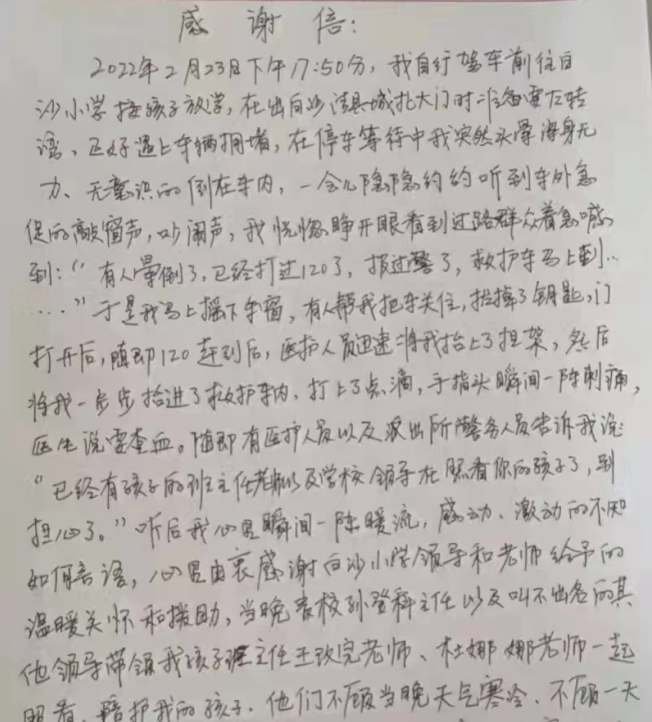 感谢信:
2022年2月23日下午17:50分,我自行驾车前往白
沙小学接孩子放学,在出白沙清县城北大门时准备要左转
湾、正好遇上车辆拥堵,在停车等待中我突然头晕浑身无
力、无意识的倒在车内,一会儿隐隐约约听到车外急
促的敲窗声,吵闹声,我恍惚睁开眼看到过路群众着急喊
到:“有人晕倒了,已经打过120了,报过警了,救护车马上到..
....”于是我马上摇下车窗,有人帮我把车关住,拔掉了钥匙,门
打开后,随即120赶到后,医护人员迅速将我抬上了担架,然后
将我一步步抬进了救护车内,打上了点滴,手指头瞬间一阵刺痛,
医生说要查血。随即有医护人员以及派出所警务人员告诉我说:
“已经有孩子的班主任老师以及学校领导在照看你的孩子了,别
担心了。”听后我心里瞬间一阵暖流,感动、激动的不知
如何言语,心里由衷感谢白沙小学领导和老师给予的
温暖关怀和援助,当晚贵校孙登科主任以及叫不出名的其
他领导带领我孩子班主任王玫完老师、杜娜娜老师一起
照看、陪护我的孩子,他们不顾当晚天气寒冷、不顾一天